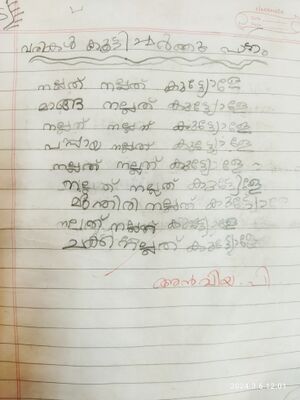 classmate
വരികൾ കൂട്ടിച്ചേർത്തു പാടാം
നല്ലത് നല്ലത് കൂട്ടരേ
മാങ്ങ നല്ലത് കൂട്ടരേ
നല്ലത് നല്ലത് കൂട്ടരേ
പപ്പായ നല്ലത് കൂട്ടരേ
നല്ലത് നല്ലത് കൂട്ടരേ
നല്ലത് നല്ലത് കൂട്ടരേ
മുന്തിരി നല്ലത് കൂട്ടരേ
നല്ലത് നല്ലത് കൂട്ടരേ
ചക്ക നല്ലത് കൂട്ടരേ
അൻവിയ പി
2024.3.6 12:01